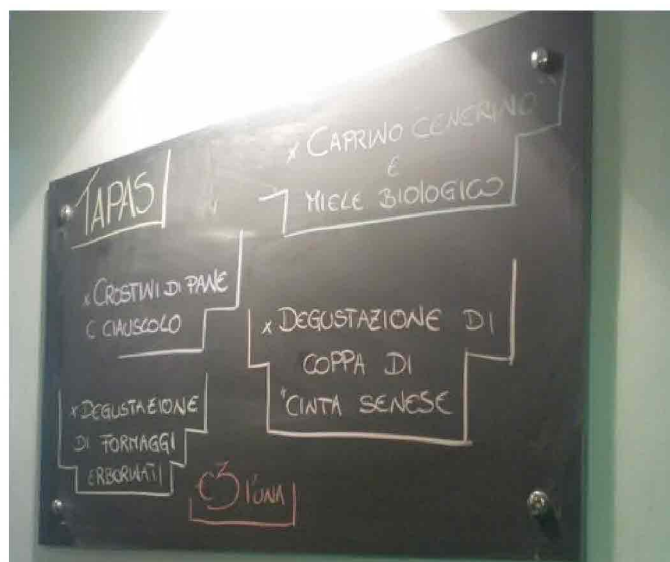 TAPAS
x CAPRINO CENERINO
E
MIELE BIOLOGICO
x CROSTINI DI PANE
E CIAUSCOLO
x DEGUSTAZIONE DI
COPPA DI
"CINTA SENESE
x DEGUSTAZIONE
DI FORMAGGI
ERBORINATI
€3 l'UNA